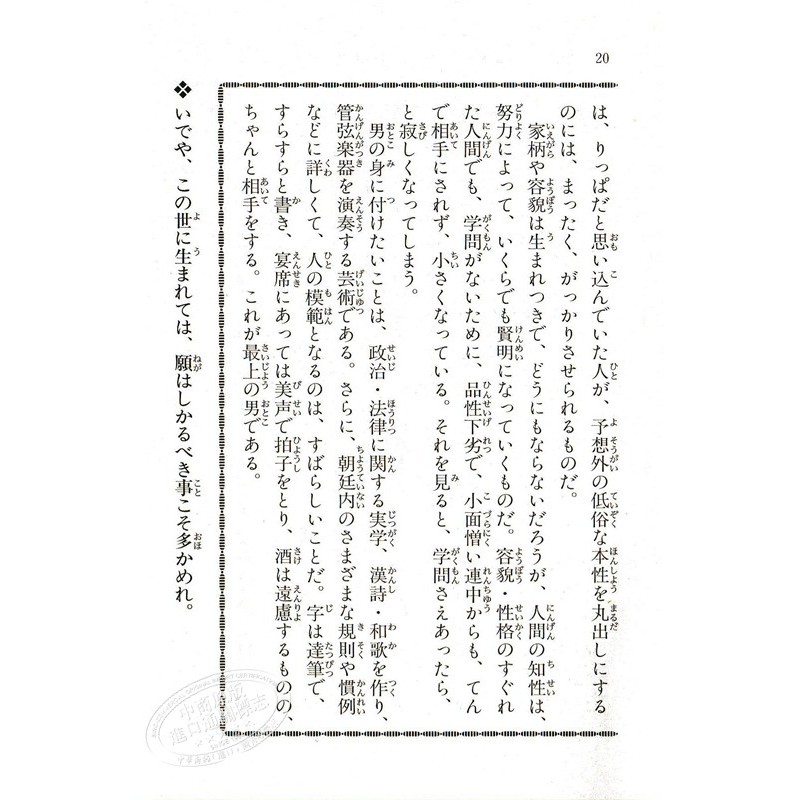 20
は、りっぱだと思い込んでいた人が、予想外の低俗な本性を丸出しにする
のには、まったく、がっかりさせられるものだ。
家柄や容貌は生まれつきで、どうにもならないだろうが、人間の知性は、
努力によって、いくらでも賢明になっていくものだ。容貌・性格のすぐれ
た人間でも、学問がないために、品性下劣で、小面憎い連中からも、てん
で相手にされず、小さくなっている。それを見ると、学問さえあったら、
と寂しくなってしまう。
男の身に付けたいことは、政治・法律に関する実学、漢詩・和歌を作り、
管弦楽器を演奏する芸術である。さらに、朝廷内のさまざまな規則や慣例
などに詳しくて、人の模範となるのは、すばらしいことだ。字は達筆で、
すらすらと書き、宴席にあっては美声で拍子をとり、酒は遠慮するものの、
ちゃんと相手をする。これが最上の男である。
❖いでや、この世に生まれては、願はしかるべき事こそ多かめれ。